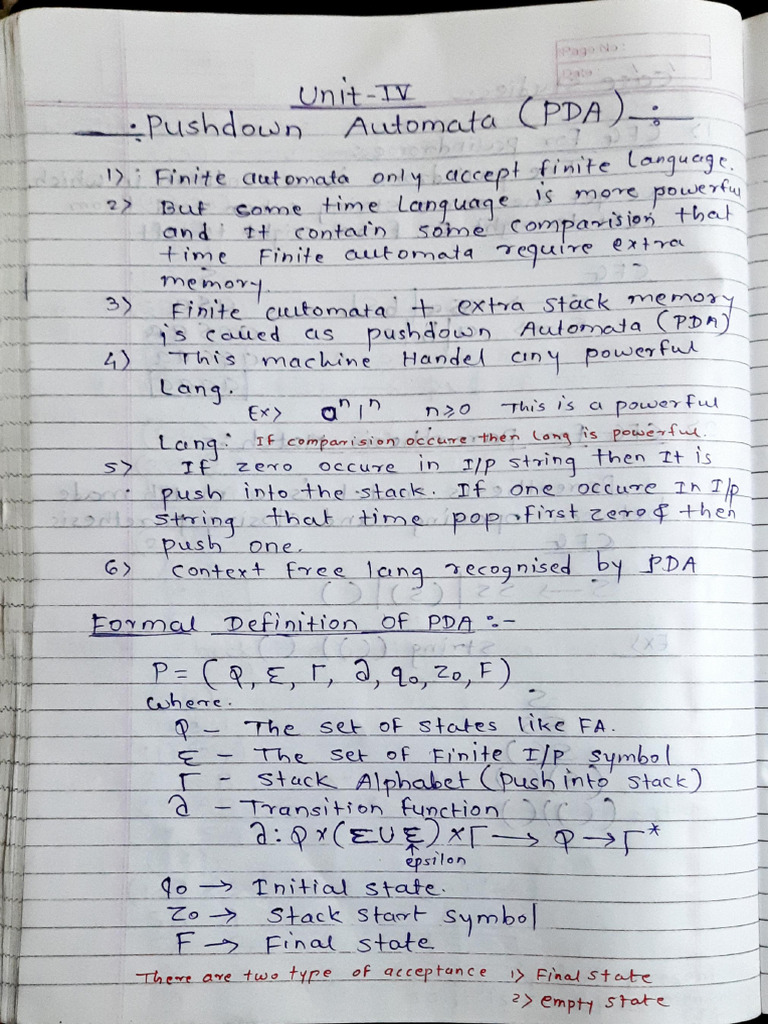 Page No:
Date
Unit-IV
:Pushdown Automata (PDA):
1) Finite automata only accept finite language.
2) But some time Language is more powerful
and It contain some comparision that
time Finite automata require extra
memory.
3) Finite automata + extra stack memory
is called as pushdown Automata (PDA)
4) This machine Handel any powerful
Lang.
Ex> 0ⁿ1ⁿ n≥0 This is a powerful
Lang: If comparision occure then lang is powerful.
5) If zero occure in I/p string then It is
push into the stack. If one occure In I/p
string that time pop first zero & then
push one.
6) context free lang recognised by PDA
Formal Definition OF PDA :-
P = (Q, Σ, Γ, ∂, q₀, z₀, F)
where.
Q - The set of states like FA.
Σ - The set of Finite I/p symbol
Γ - Stack Alphabet (push into stack)
∂ - Transition function
∂: Q x (Σ U ε) x Γ → Q → Γ*
epsilon
q₀ → Initial state.
z₀ → Stack start symbol
F → Final state
There are two type of acceptance 1) Final state
2) empty state